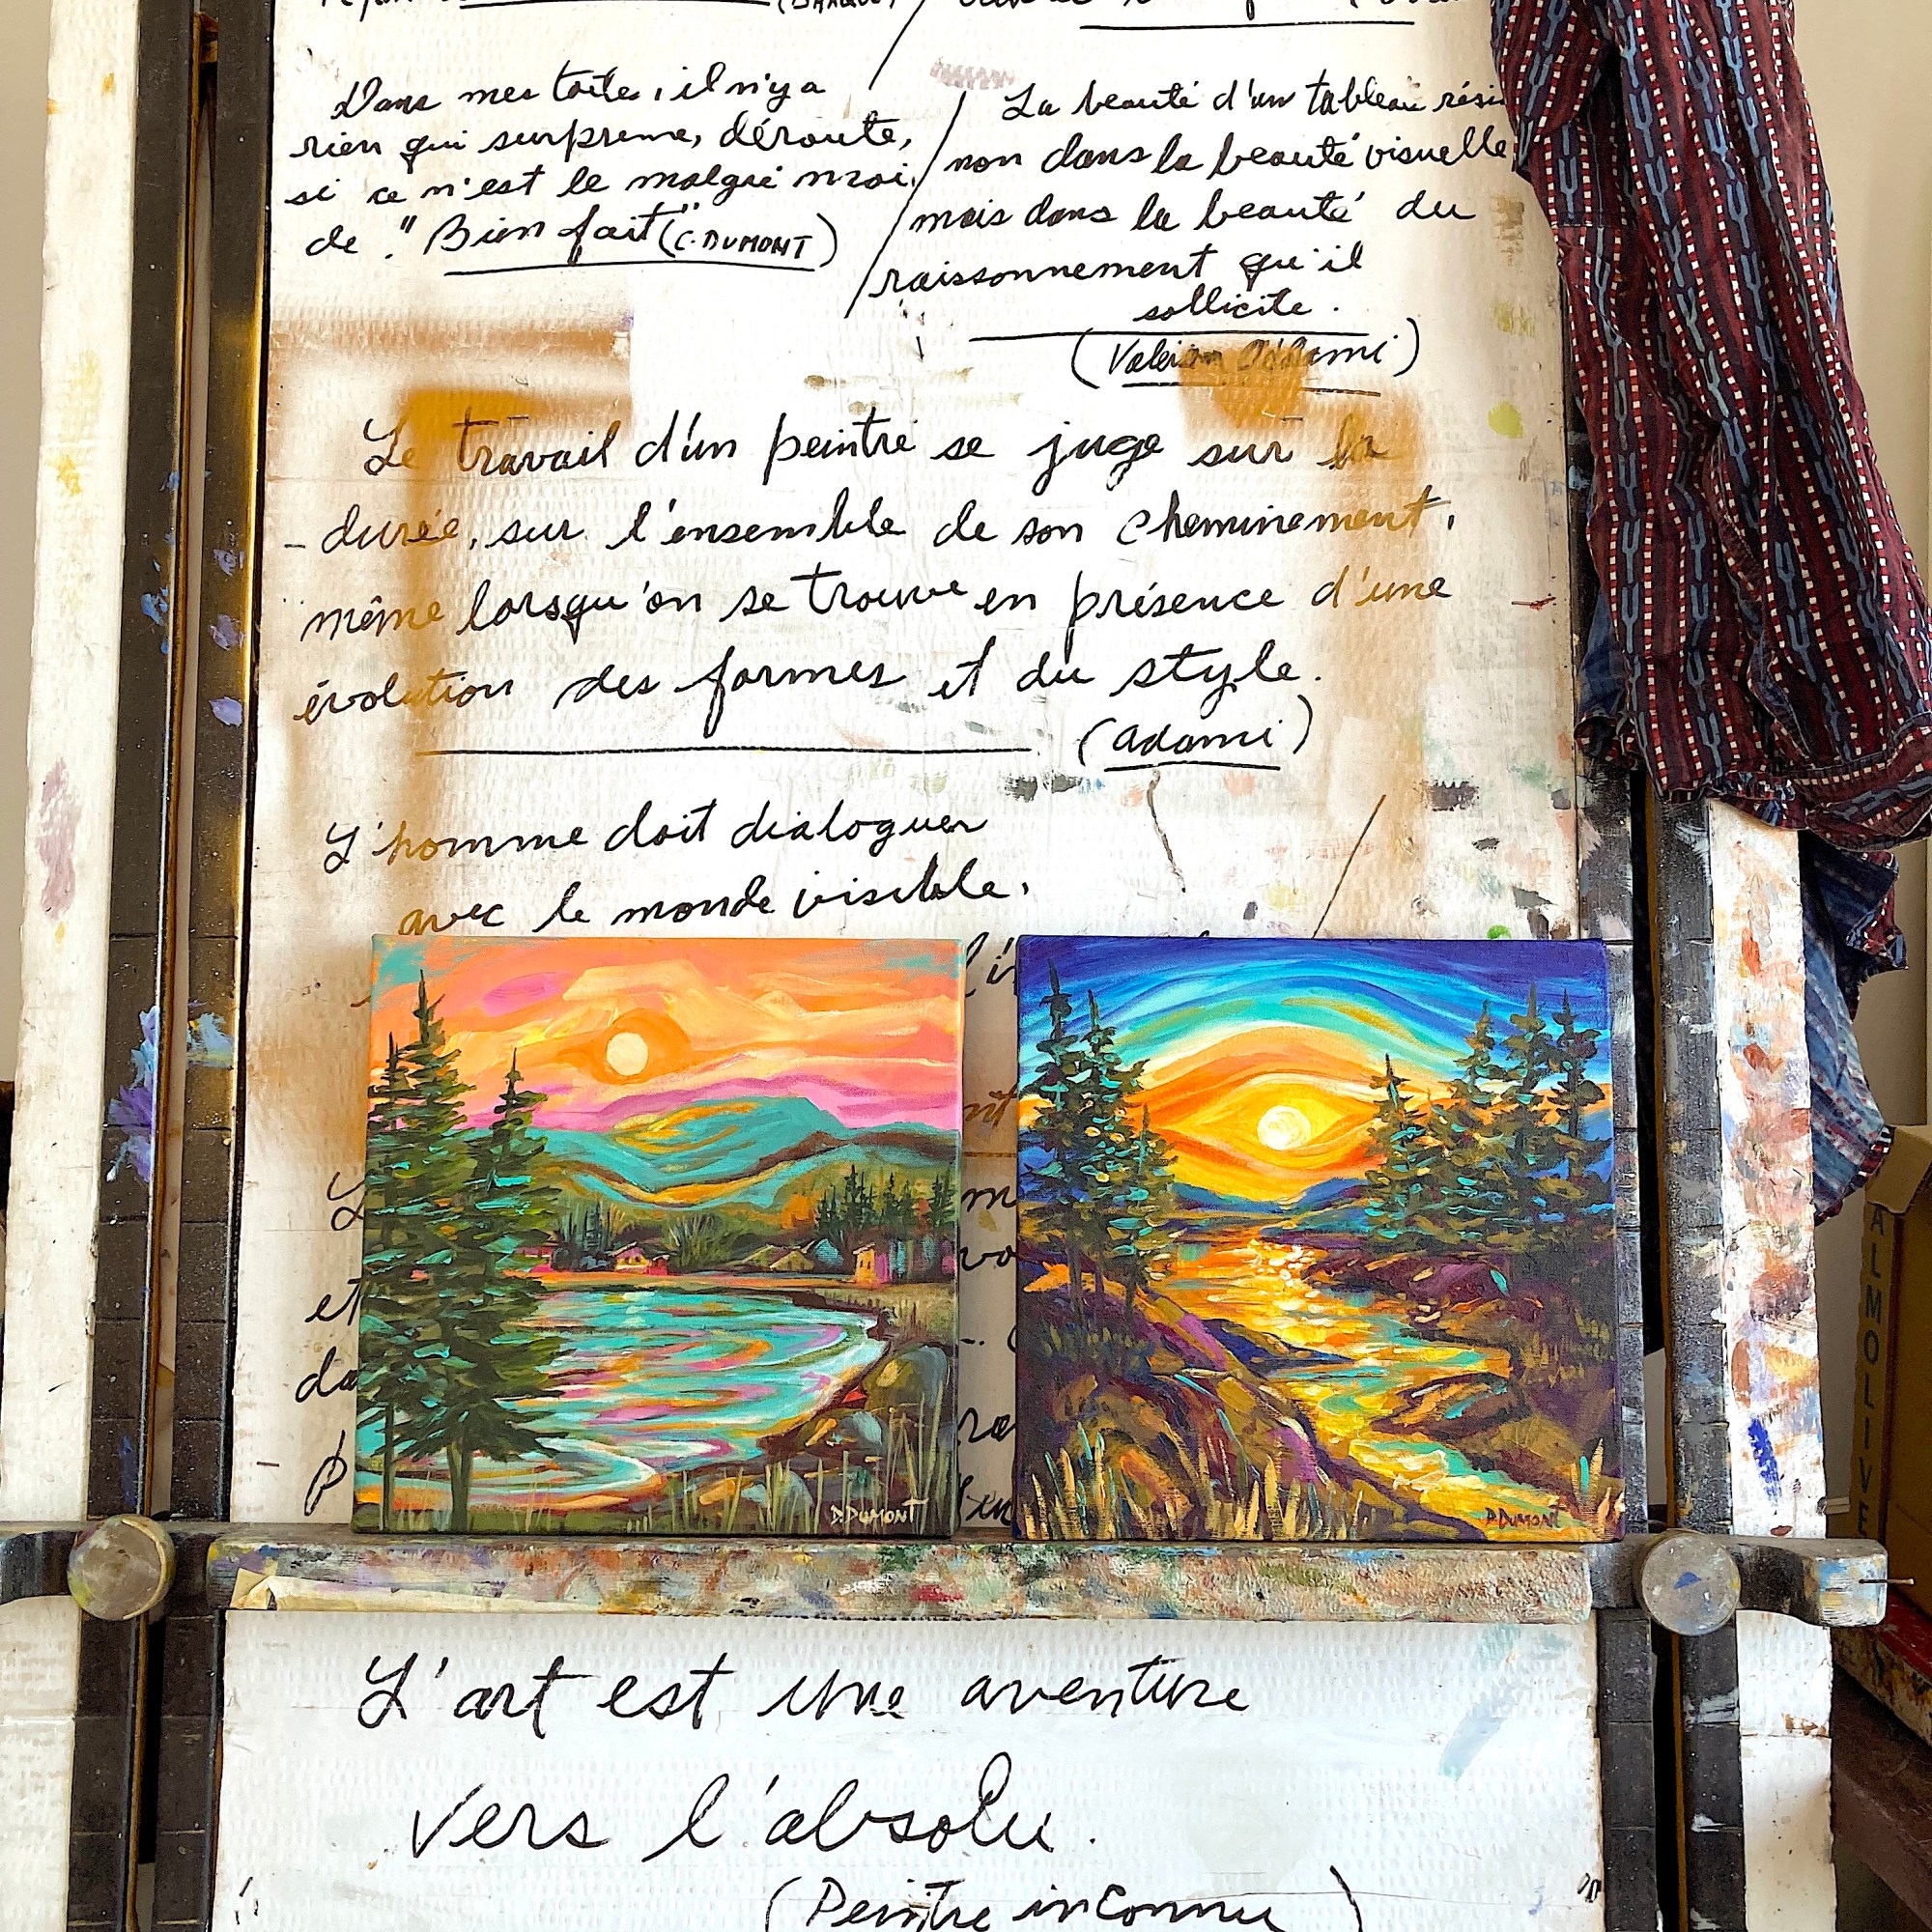 Dans mes toiles, il n'y a
rien qui surprenne, déroute,
si ce n'est le malgré moi,
de "Bien fait" (C. DUMONT)
La beauté d'un tableau rési
non dans la beauté visuelle,
mais dans la beauté du
raissonnement qu'il
sollicite.
(Valerio Adami)
Le travail d'un peintre se juge sur la
durée, sur l'ensemble de son cheminement,
même lorsqu'on se trouve en présence d'une
évolution des formes et du style.
(adami)
L'homme doit dialoguer
avec le monde visible,
et
D. DUMONT
D. DUMONT
L'art est une aventure
vers l'absolu.
(Peintre inconnu)
ALMOLIVE